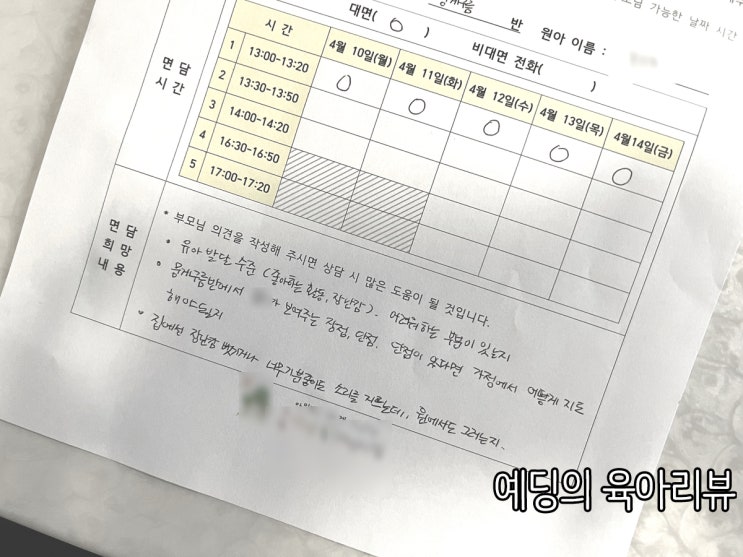 모님 가능한 날짜 시간
반 원아 이름 :
대면( O ) 비대면 전화( )
면담 시간
시 간 4월 10일(월) 4월 11일(화) 4월 12일(수) 4월 13일(목) 4월14일(금)
1 13:00-13:20 O O O O O
2 13:30-13:50
3 14:00-14:20
4 16:30-16:50
5 17:00-17:20
면 담 희 망 내 용
* 부모님 의견을 작성해 주시면 상담 시 많은 도움이 될 것입니다.
* 유아 발달 수준 (좋아하는 활동, 장난감). 어려워하는 부분이 있는지
* 뭉게구름반에서 가 보여주는 장점, 단점. 단점이 있다면 가정에서 어떻게 지도
해야될지
* 집에선 장난감 뺏기거나 너무 기분좋아도 소리를 지르는데, 원에서도 그러는지.
예딩의 육아리뷰